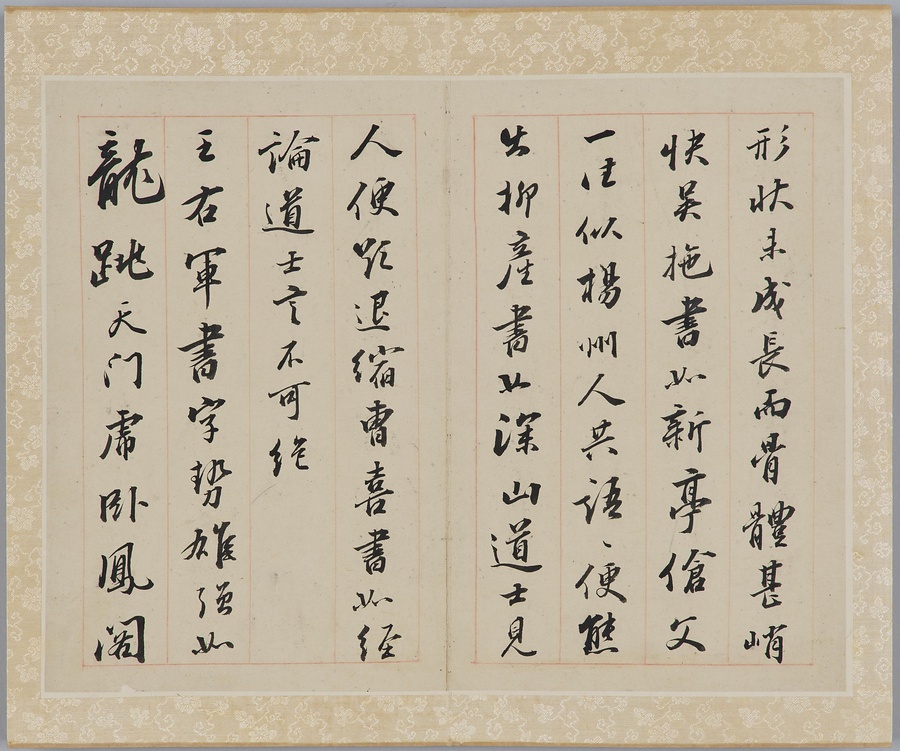 形狀未成長而骨體甚峭
快吳拖書如新亭傖父
一往似楊州人共語〻便態
出柳產書如深山道士見
人便欲退縮曹喜書如經
論道士言不可絕
王右軍書字勢雄強如
龍跳天门虎卧鳳阁